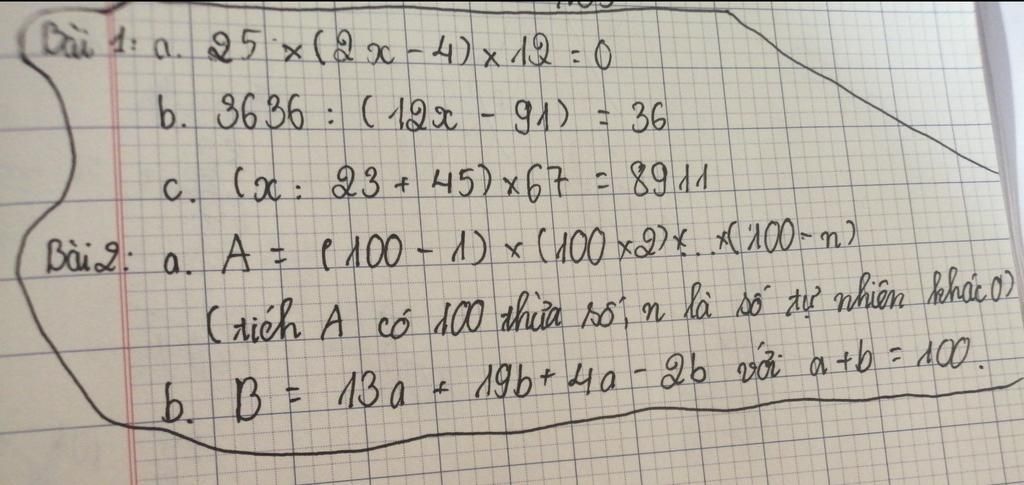 Bài 1: a. 25 × (2x - 4) × 12 = 0
b. 3636 : (12x - 91) = 36
c. (x : 23 + 45) × 67 = 8911
Bài 2: a. A = (100 - 1) × (100 × 2) × ... × (100 - n)
(tích A có 100 thừa số, n là số tự nhiên khác 0)
b. B = 13a + 19b + 4a - 2b với a + b = 100.